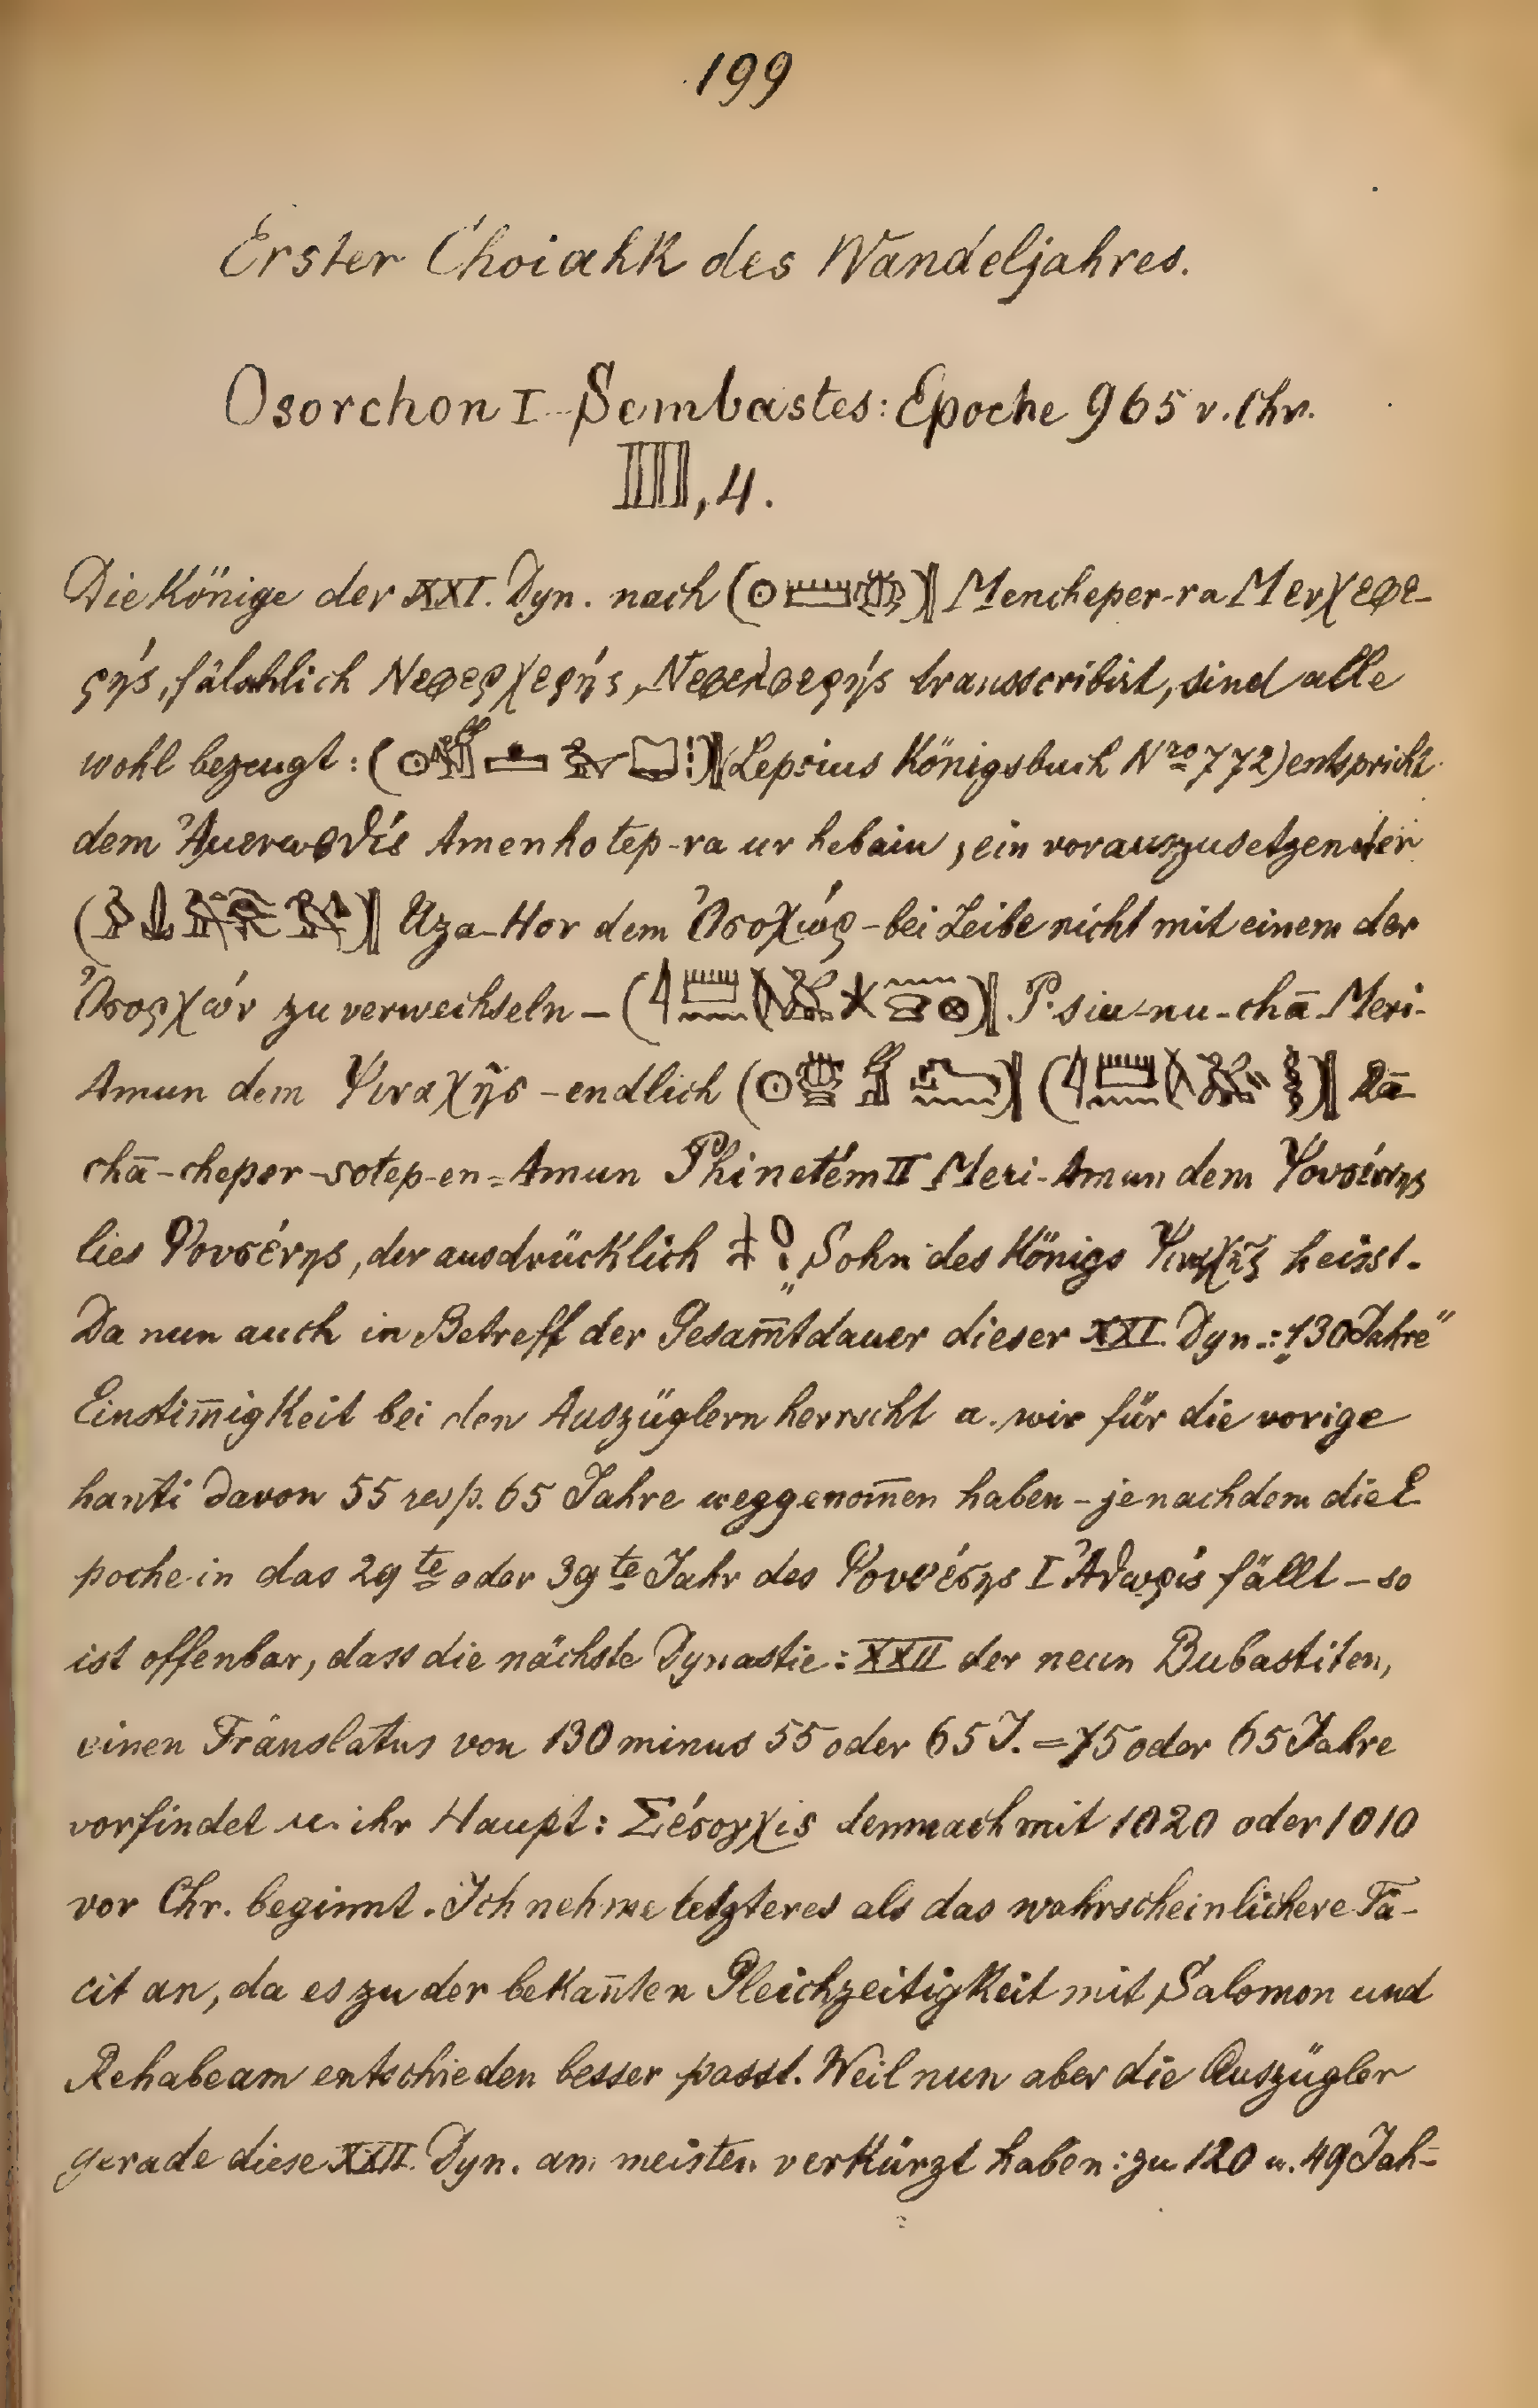 199
Erster Choiahk des Wandeljahres.
Osorchon I Sembastes: Epoche 965 v. Chr.
IIII, 4.
Die Könige der XXI. Dyn. nach Mencheper-ra Μενχεφε-
ρής, fälschlich Νεφερχερής, transscribirt, sind alle
wohl bezeugt: (Lepsius Königsbuch Nro 772) entspricht
dem Amenhotep-ra ur hebain, ein vorauszusetzender
Uza-Hor dem Ὀσοχώρ – bei Leibe nicht mit einem der
Ὀσορχών zu verwechseln – P-siu-nu-chā-Meri-
Amun dem Ψιναχῆς – endlich Rā-
chā-cheper-sotep-en-Amun Phinetém II Meri-Amun dem
lies Ψουσέννης, der ausdrücklich „Sohn des Königs heisst.
Da nun auch in Betreff der Gesam̄tdauer dieser XXI. Dyn.: „130 Jahre"
Einstim̄igkeit bei den Auszüglern herrscht u. wir für die vorige
hanti davon 55 resp. 65 Jahre weggenom̄en haben – jenachdem die E
poche in das 29te oder 39te Jahr des I fällt – so
ist offenbar, dass die nächste Dynastie: XXII der neun Bubastiten,
einen Translatus von 130 minus 55 oder 65 J. = 75 oder 65 Jahre
vorfindet u. ihr Haupt: Σέσογχις demnach mit 1020 oder 1010
vor Chr. beginnt. Ich nehme letzteres als das wahrscheinlichere Fa-
cit an, da es zu der bekan̄ten Gleichzeitigkeit mit Salomon und
Rehabeam entschieden besser passt. Weil nun aber die Auszügler
gerade diese XXII. Dyn. am meisten verkürzt haben: zu 120 u. 49 Jah=